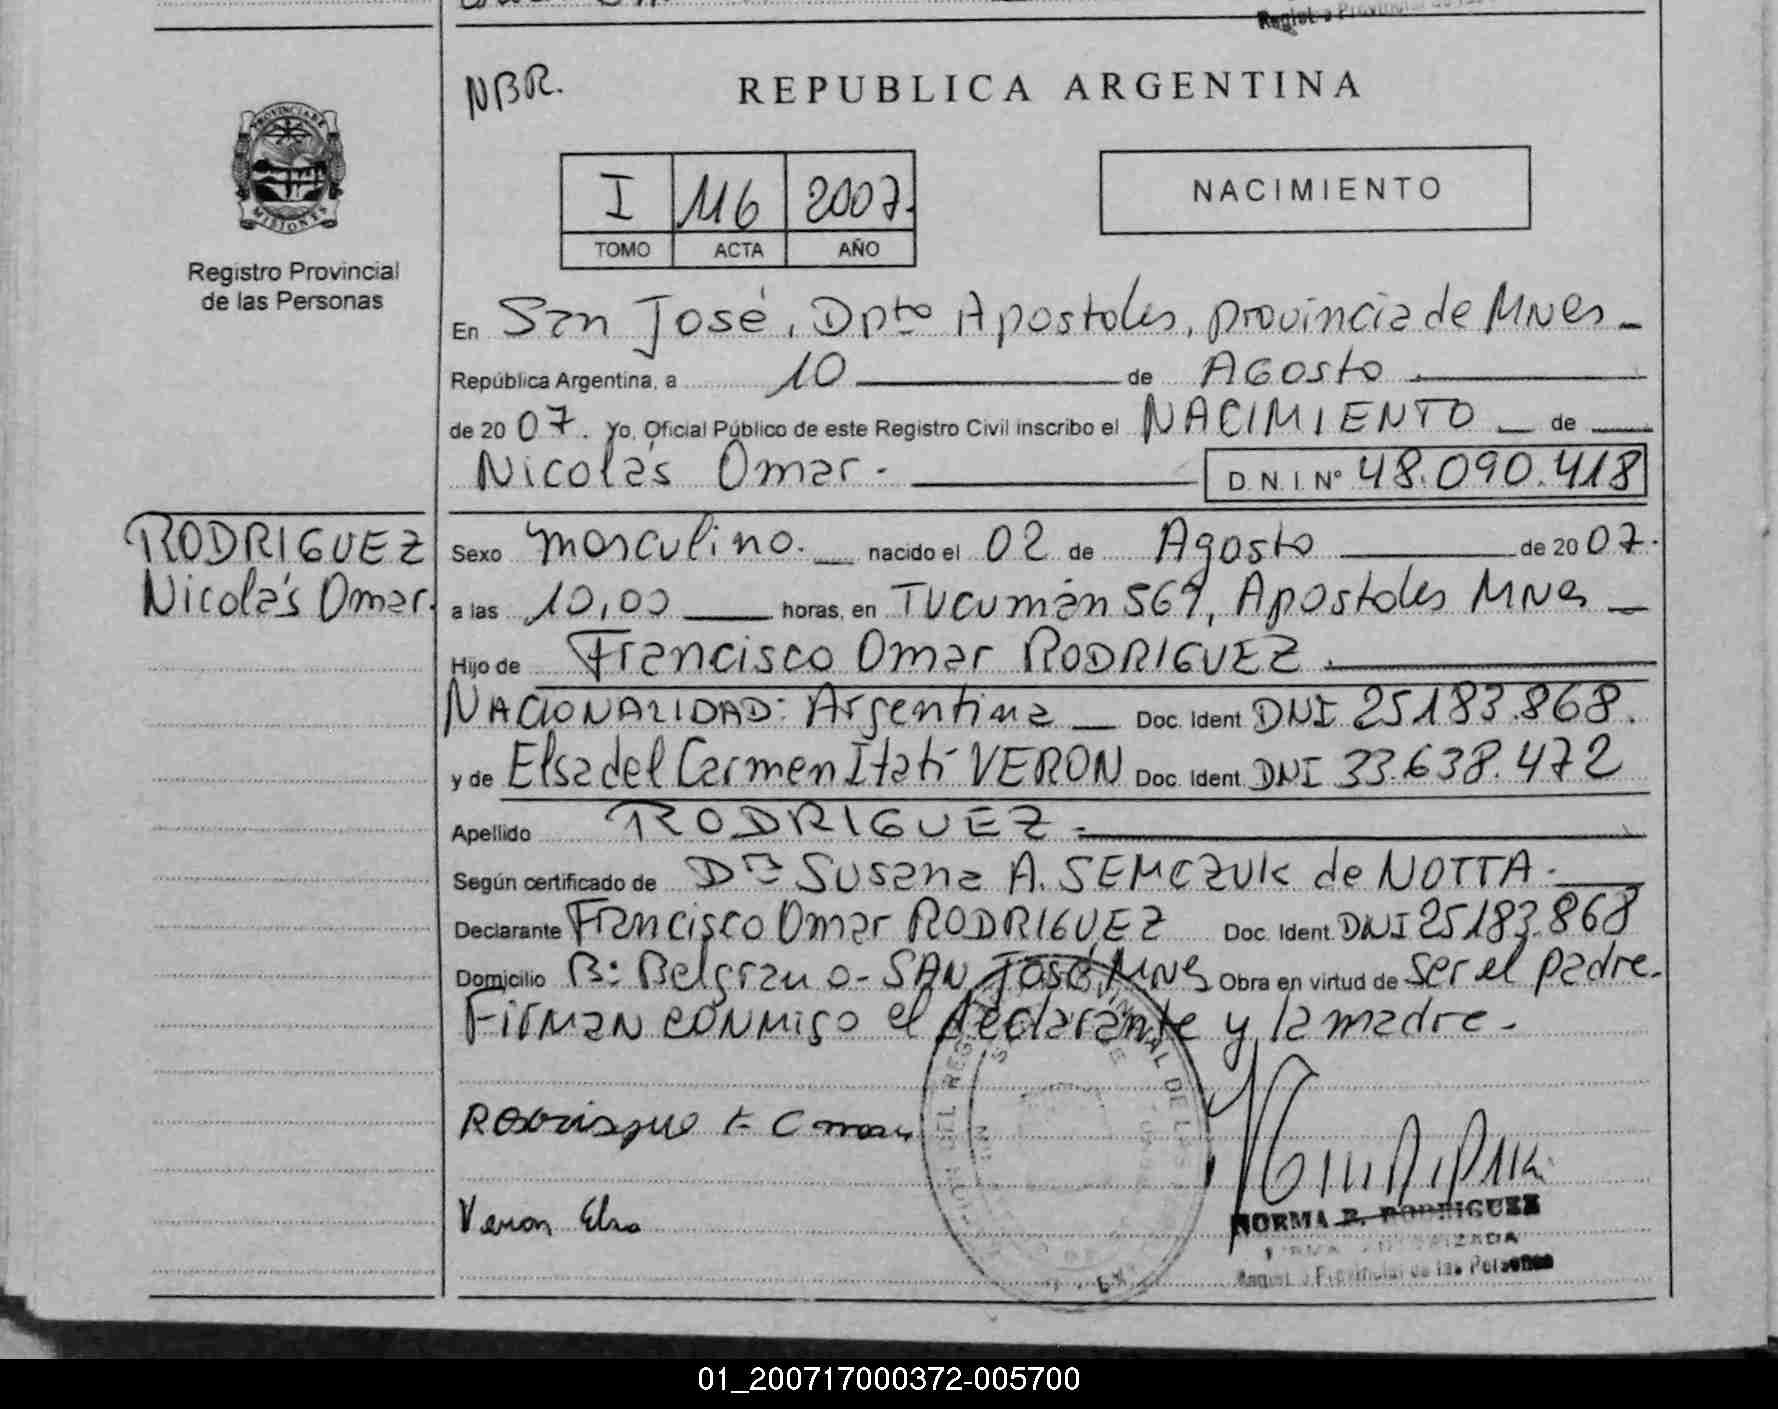 NBR.
REPUBLICA ARGENTINA
I 116 2007.
TOMO ACTA AÑO
NACIMIENTO
PROVINCIA DE
MISIONES
Registro Provincial
de las Personas
En San José, Dpto Apostoles, provincia de Mnes
República Argentina, a 10 de Agosto
de 2007. Yo, Oficial Público de este Registro Civil inscribo el NACIMIENTO de
Nicolás Omar. D.N.I. Nº 48.090.418
RODRIGUEZ
Nicolás Omar.
Sexo masculino. nacido el 02 de Agosto de 2007.
a las 10,00 horas, en Tucumán 569, Apostoles Mnes
Hijo de Francisco Omar RODRIGUEZ
NACIONALIDAD: Argentina Doc. Ident. DNI 25183.868.
y de Elsa del Carmen Itatí VERON Doc. Ident. DNI 33.638.472
Apellido RODRIGUEZ
Según certificado de Dra Susana A. SEMCZUK de NOTTA.
Declarante Francisco Omar RODRIGUEZ Doc. Ident. DNI 25183.868
Domicilio Bº Belgrano - SAN José, Mnes Obra en virtud de ser el padre.
Firman conmigo el declarante y la madre.
Veron Elsa
NORMA B. RODRIGUEZ
Registro Provincial de las Personas
01_200717000372-005700